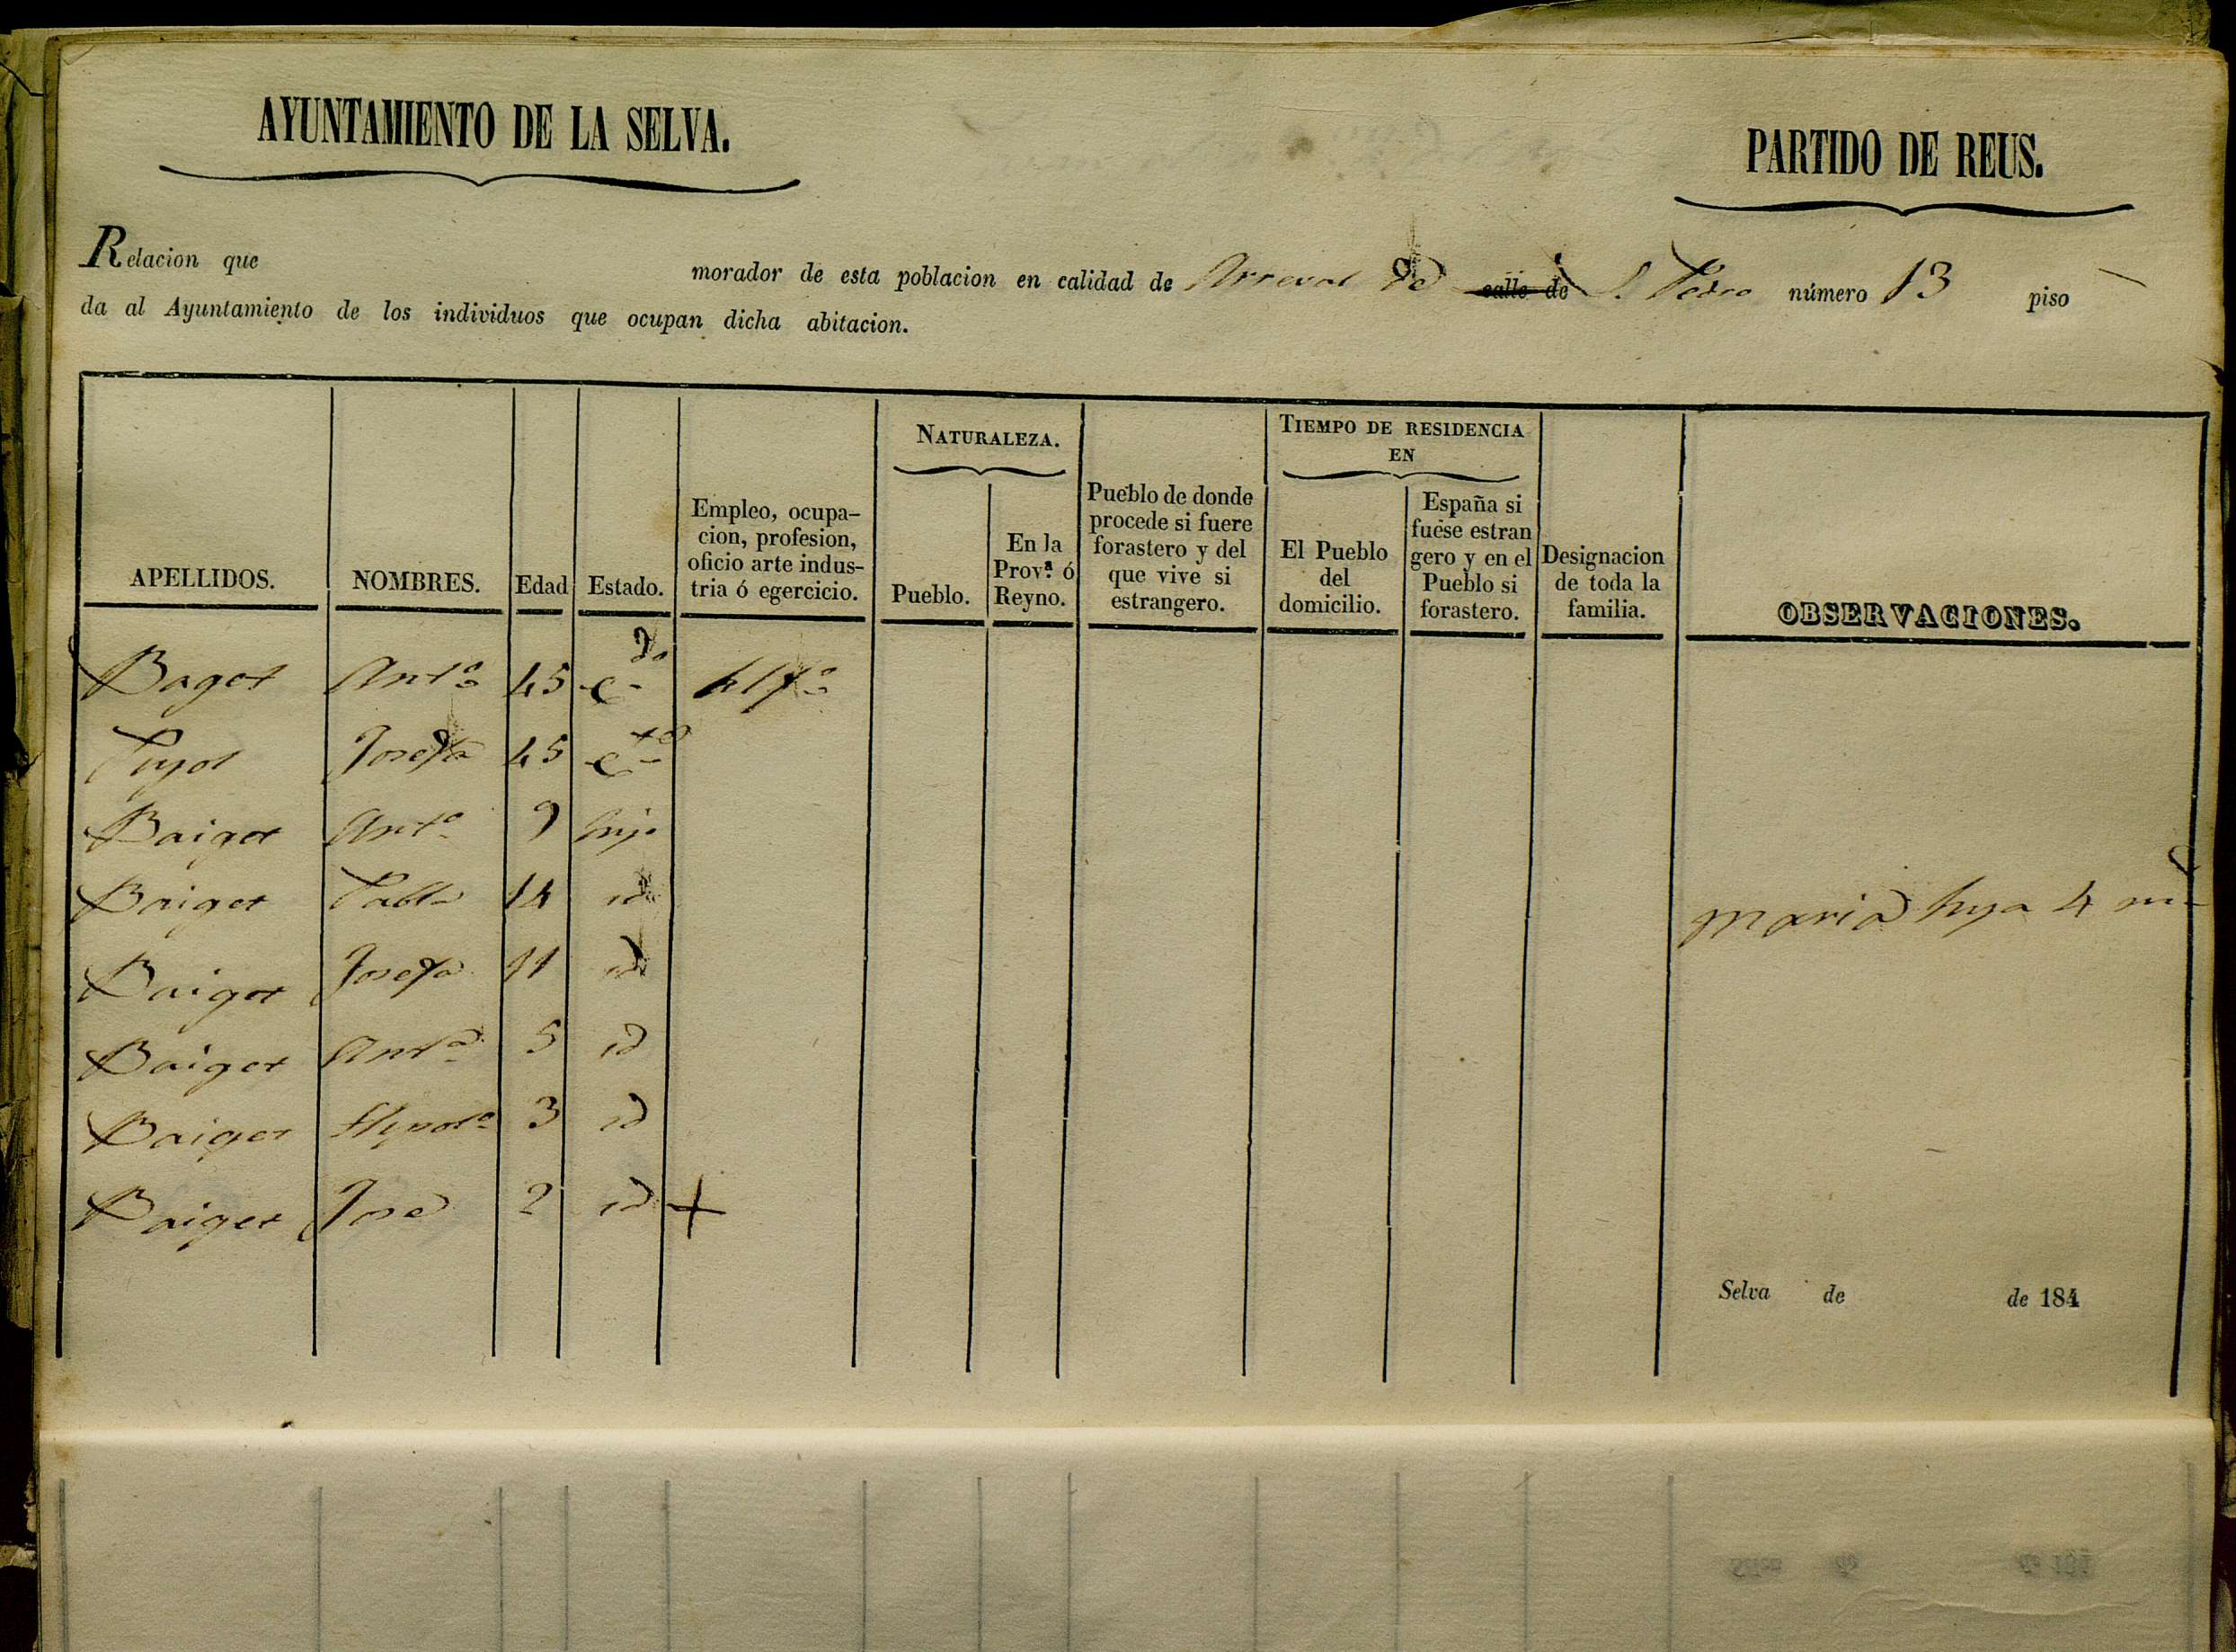 AYUNTAMIENTO DE LA SELVA.
PARTIDO DE REUS.
Relacion que morador de esta poblacion en calidad de Arreval de calle de S. Pedro número 13 piso —
da al Ayuntamiento de los individuos que ocupan dicha abitacion.
NATURALEZA.
TIEMPO DE RESIDENCIA
EN
APELLIDOS.
NOMBRES.
Edad
Estado.
Empleo, ocupa-
cion, profesion,
oficio arte indus-
tria ó egercicio.
Pueblo.
En la
Prov.ª ó
Reyno.
Pueblo de donde
procede si fuere
forastero y del
que vive si
estrangero.
El Pueblo
del
domicilio.
España si
fuese estran
gero y en el
Pueblo si
forastero.
Designacion
de toda la
familia.
OBSERVACIONES.
Baget Antº 45 cdo
Pujol Josefa 45 cta
Baiget Antº 9 hijo
Baiget Pablo 14 id
Maria hija 4 m
Baiget Josefa 11 id
Baiget Antª 5 id
Baiget 3 id
Baiget Jose 2 id +
Selva de de 184